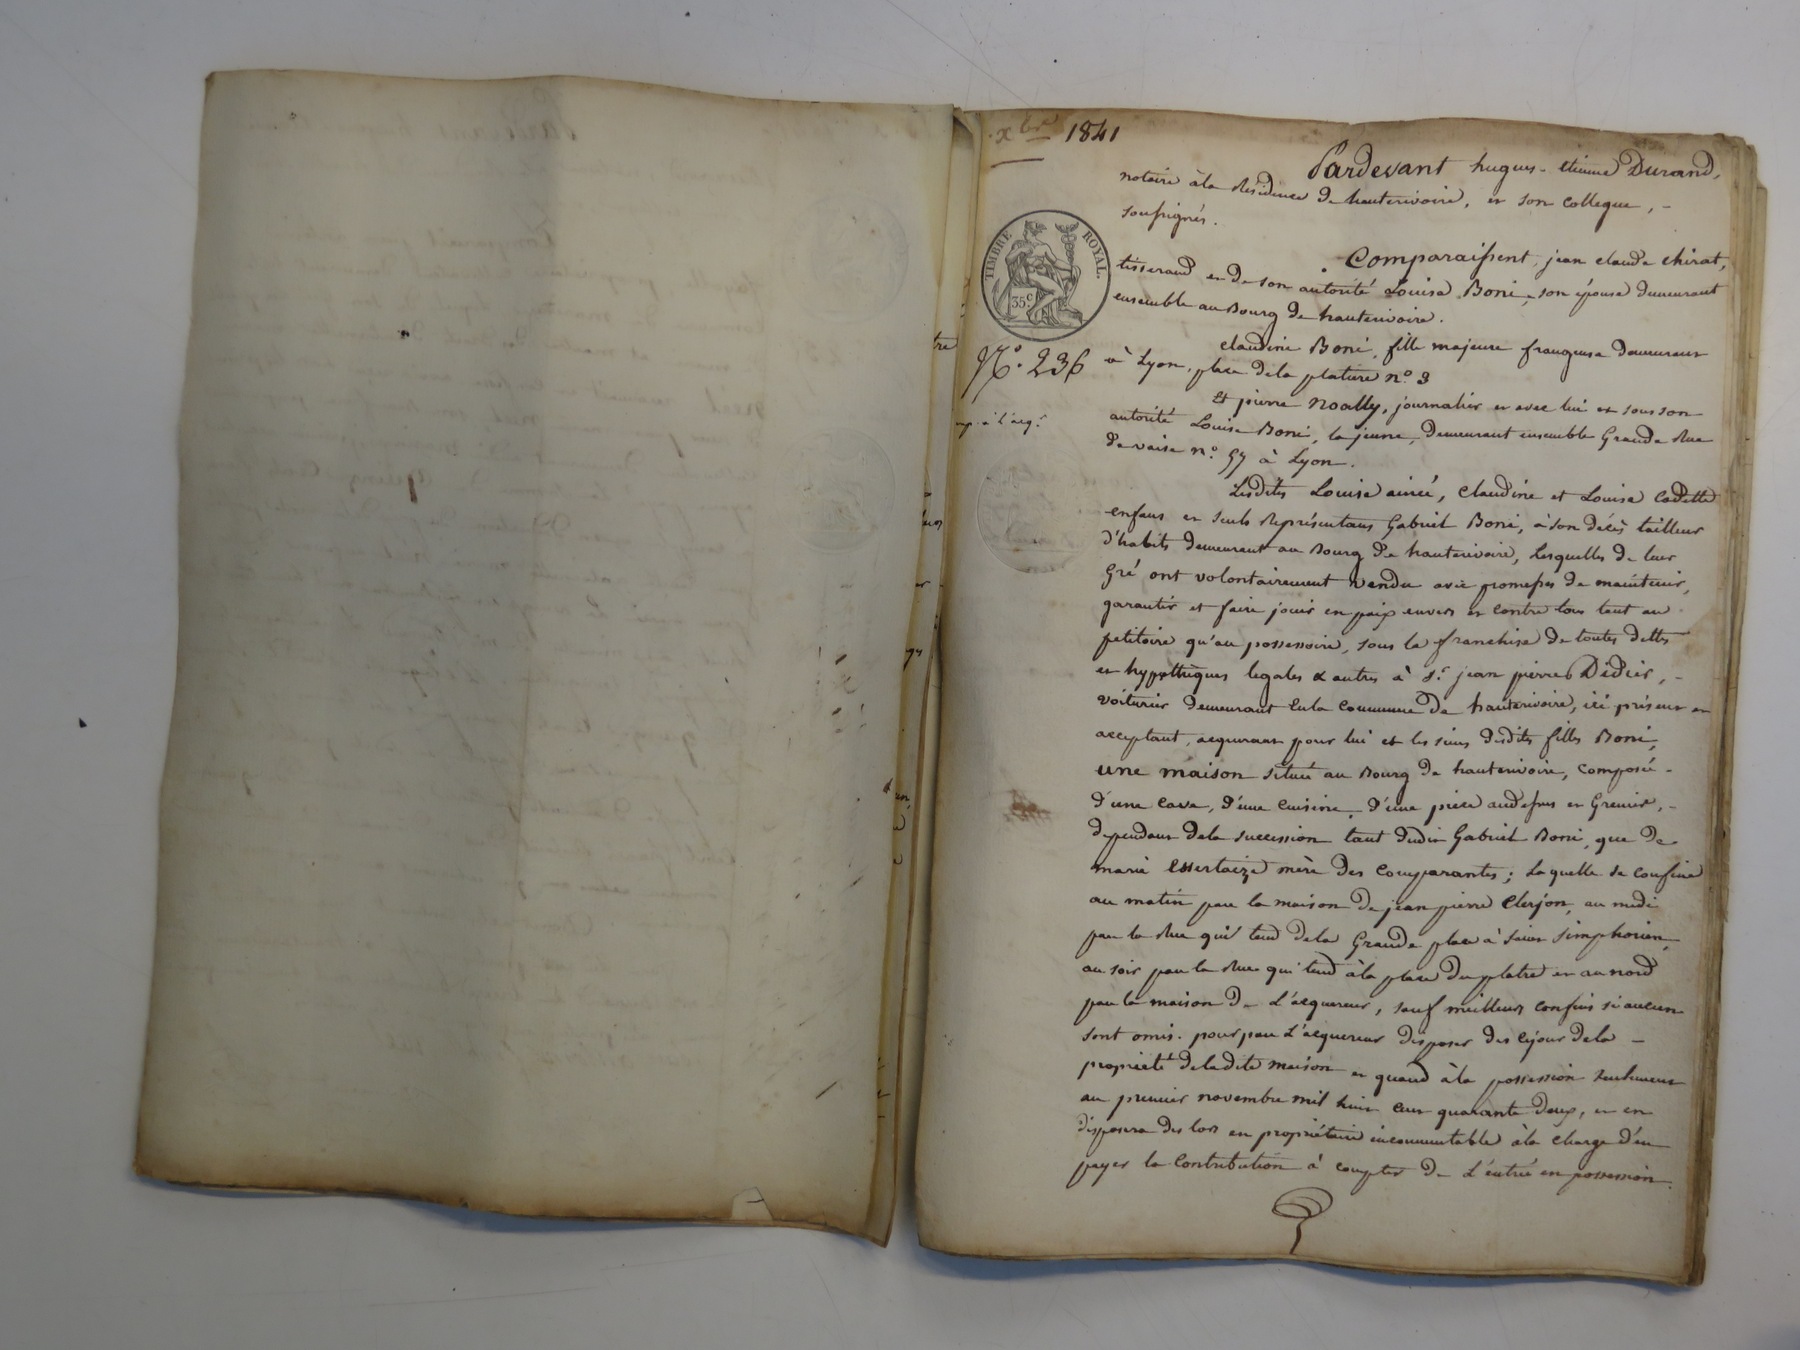 xbre 1841
Pardevant hugues-etienne Durand,
notaire à la Résidence de hauterivoire, et son collegue,
soussignés.
TIMBRE ROYAL.
35c
Comparaissent, jean claude chirat,
tisserand et de son autorité Louise Boni, son épouse demeurant
ensemble au Bourg de hauterivoire.
claudine Boni, fille majeure frangeuse demeurant
N.° 236
à Lyon, place de la platière n.° 3
Et pierre noally, journalier et avec lui et sous son
autorité Louise Boni, la jeune, demeurant ensemble Grande Rue
de vaise n.° 57 à Lyon.
Lesdites Louise ainée, claudine et Louise Cadette
enfans et seuls Représentans Gabriel Boni, à son décès tailleur
d'habits demeurant au Bourg de hauterivoire, Lesquelles de leur
Gré ont volontairement vendu avec promesses de maintenir,
garantir et faire jouir en paix envers et contre tous tant au
petitoire qu'au possessoire, sous la franchise de toutes dettes
et hypothèques legales & autres à Sr. jean pierre Didier,
voiturier demeurant en la commune de hauterivoire, ici présent et
acceptant, acquerant pour lui et les siens desdites filles Boni,
une maison située au Bourg de hauterivoire, composée
d'une cave, d'une cuisine, d'une pièce audessus et Grenier,
dépendant de la succession tant dudit Gabriel Boni, que de
marie Essertaize mère des comparantes; Laquelle se confine
au matin par la maison de jean pierre Clerjon, au midi
par la Rue qui tend de la Grande place à Saint Simphorien,
au soir par la Rue qui tend à la place du platre et au nord
par la maison de L'acquereur, sauf meilleurs confins si aucun
sont omis. pour par L'acquereur disposer des cejour de la
propriété de ladite maison et quand à la possession seulement
au premier novembre mil huit cent quarante deux, et en
disposera des lors en propriétaire incommutable à la charge d'en
payer la Contribution à compter de L'entrée en possession.